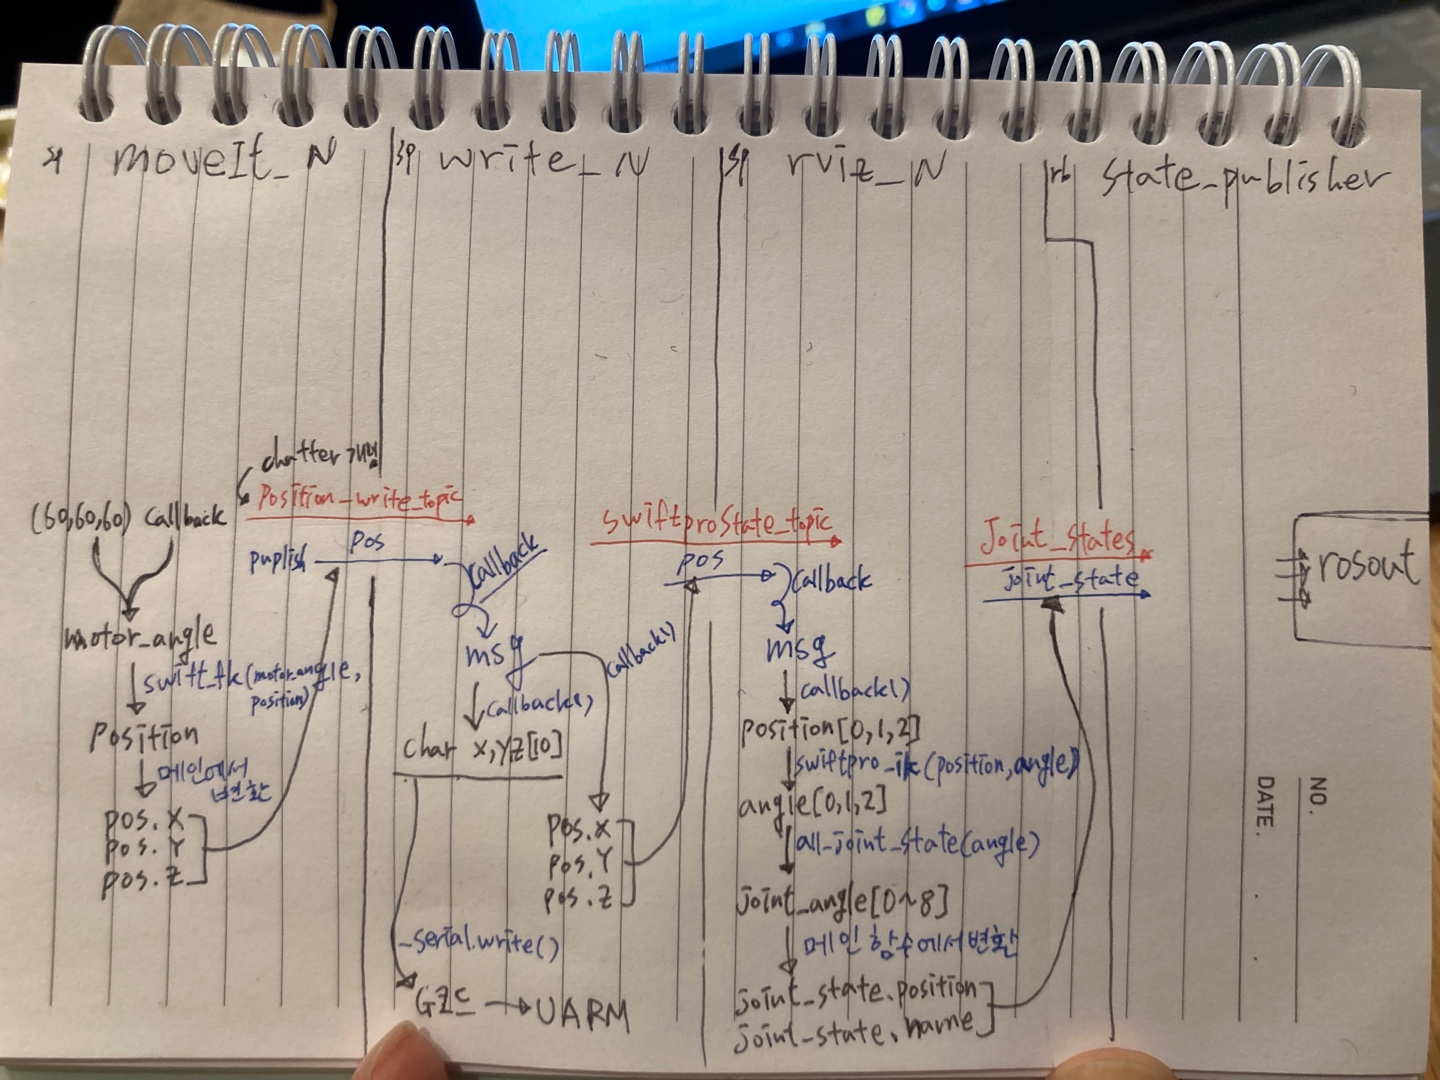 moveIt_N
sp write_N
sp rviz_N
rb state_publisher
chatter
(60,60,60) callback
Position_write_topic
puplish
pos
callback
motor_angle
swift_fk(motor_angle,
position)
Position
메인에서
변환
pos.X
pos.Y
pos.Z
msg
callback()
char X,YZ[10]
callback()
pos.X
pos.Y
pos.Z
_serial.write()
→UARM
swiftproState_topic
pos
callback
msg
callback()
position[0,1,2]
swiftpro_ik(position,angle)
angle[0,1,2]
all_joint_state(angle)
joint_angle[0~8]
메인 함수에서변환
joint_state.position
joint_state.name
Joint_States
joint_state
rosout
NO.
DATE. . .